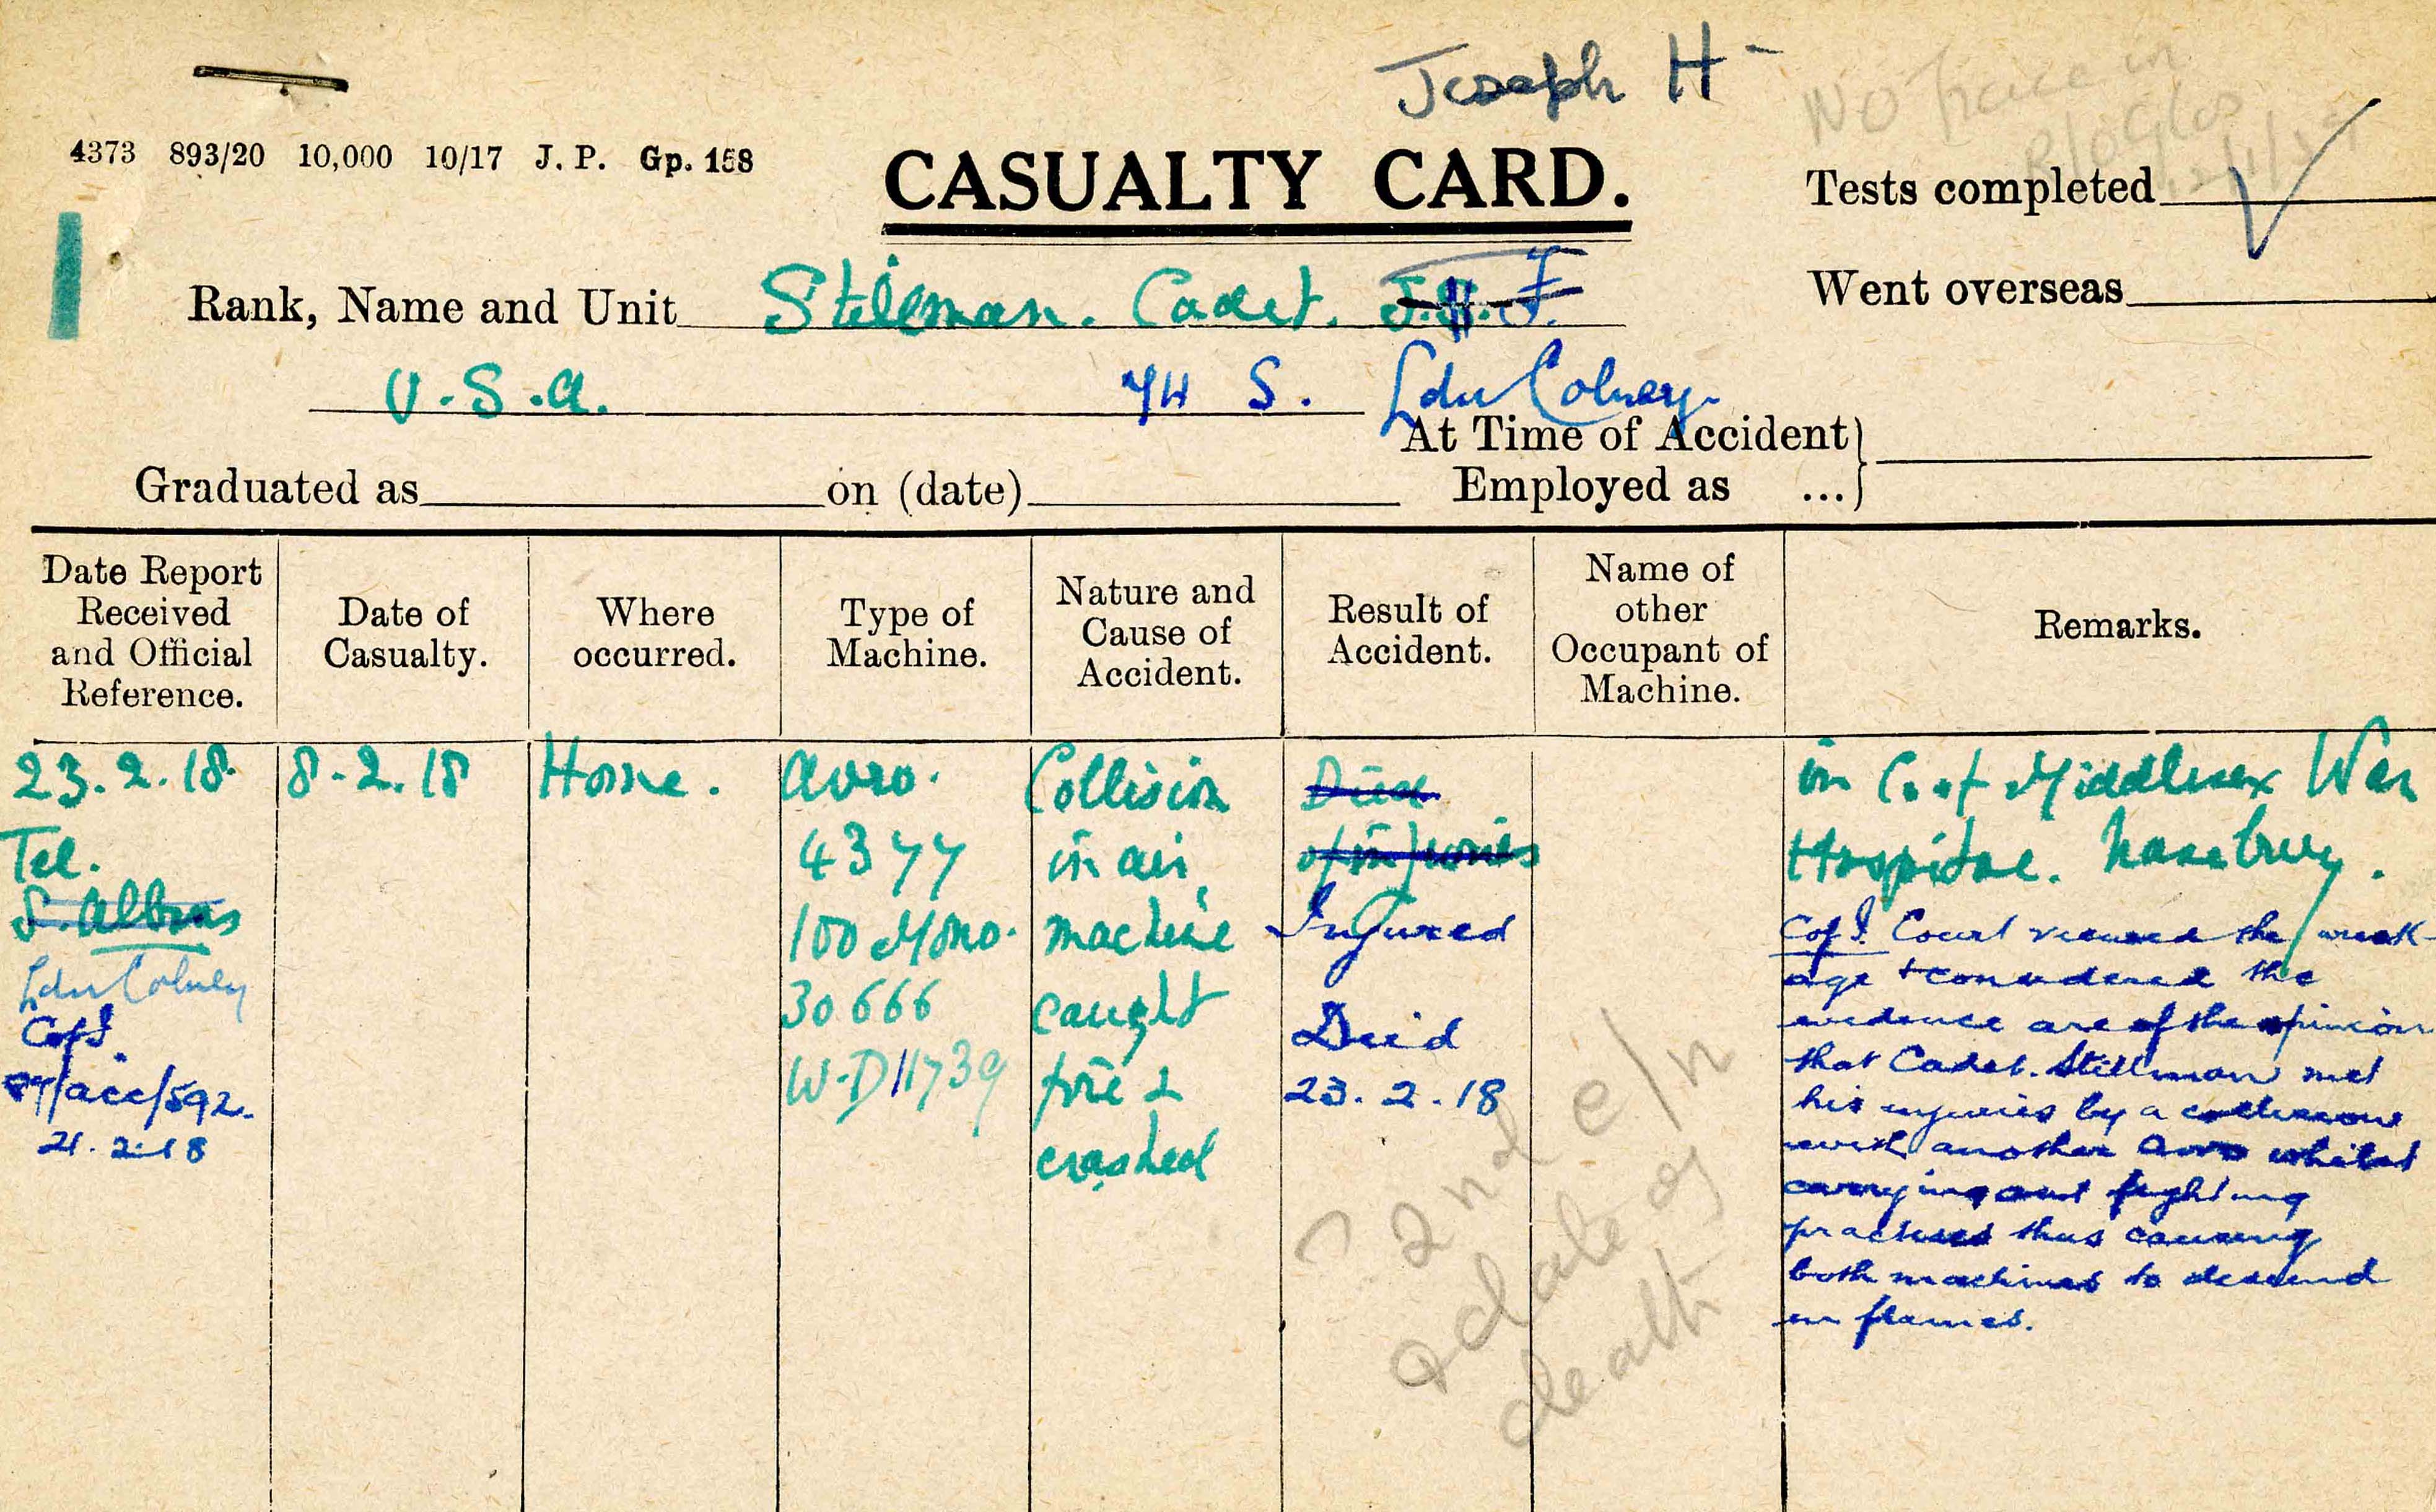 Joseph H -
No trace in
4373 893/20 10,000 10/17 J. P. Gp. 158
CASUALTY CARD.
Tests completed
Rank, Name and Unit Stillman. Cadet. J.H.F.
Went overseas
U.S.A. 74 S. Ldn Colney.
At Time of Accident
Employed as ...
Graduated as on (date)
Date Report
Received
and Official
Reference.
Date of
Casualty.
Where
occurred.
Type of
Machine.
Nature and
Cause of
Accident.
Result of
Accident.
Name of
other
Occupant of
Machine.
Remarks.
23.2.18.
Tel.
S. Albans
Ldn Colney
Cof I.
acc/592.
21.2.18
8.2.18
Home.
Avro.
4377
100 Mono.
30666
W.D 11739
Collision
in air,
machine
caught
fire &
crashed
Died
of injuries
Injured
Died
23.2.18
in C. of Middlesex War
Hospital. Napsbury.
Cof I. Court viewed the wreck-
age & considered the
evidence are of the opinion
that Cadet. Stillman met
his injuries by a collision
with another Avro whilst
carrying out fighting
practices thus causing
both machines to descend
in flames.
? 2nd e/n
& date of
death